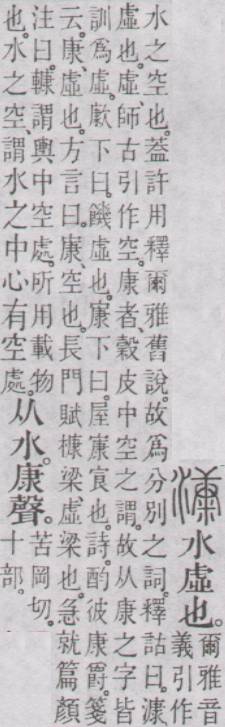 漮水虛也。爾雅音
義引作
水之空也。葢許用釋爾雅舊說。故爲分別之詞。釋詁曰。漮、
虛也。虛、師古引作空。康者、穀皮中空之謂。故从康之字皆
訓爲虛。㱂下曰。饑虛也。㝩下曰。屋㝩㝗也。詩。酌彼康爵。箋
云。康、虛也。方言曰。康、空也。長門賦槺梁、虛梁也。急就篇顏
注曰。𨎍謂輿中空處。所用載物
也。水之空、謂水之中心有空處。从水。康聲。苦岡切。
十部。